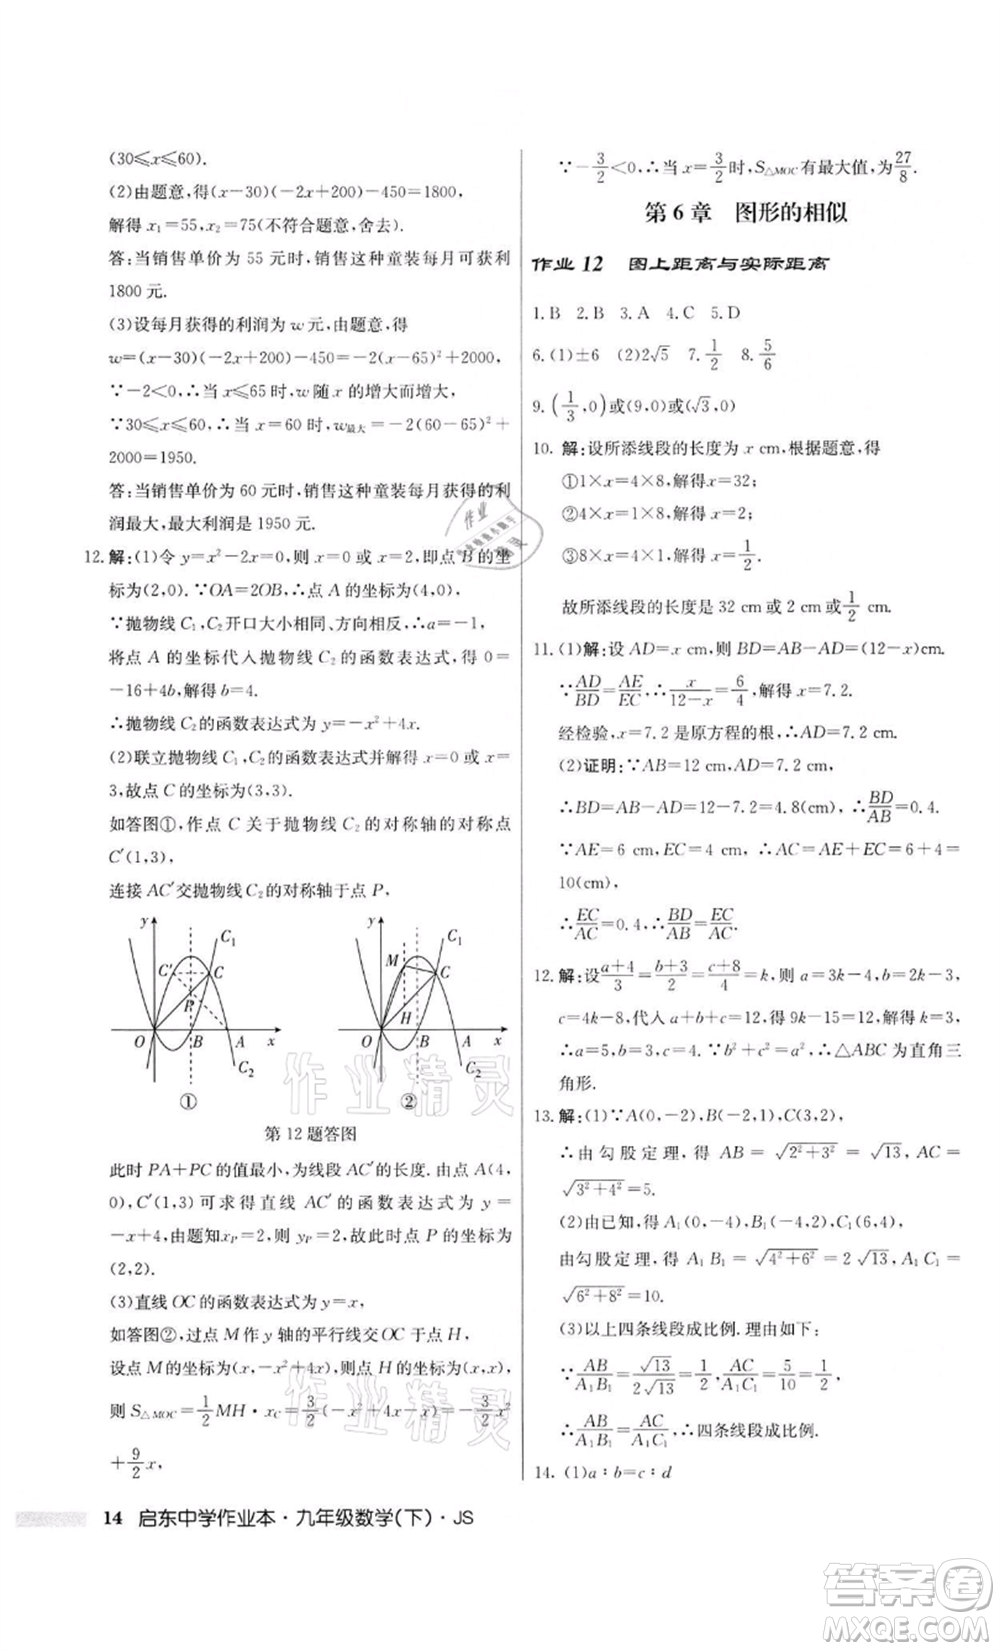 (30≤x≤60).
(2)由题意,得(x-30)(-2x+200)-450=1800,
解得 x₁=55,x₂=75(不符合题意,舍去).
答:当销售单价为 55 元时,销售这种童装每月可获利
1800 元.
(3)设每月获得的利润为 w 元,由题意,得
w=(x-30)(-2x+200)-450=-2(x-65)²+2000.
∵-2<0,∴当 x≤65 时,w 随 x 的增大而增大,
∵30≤x≤60,∴当 x=60 时,w最大=-2(60-65)²+
2000=1950.
答:当销售单价为 60 元时,销售这种童装每月获得的利
润最大,最大利润是 1950 元.
12.解:(1)令 y=x²-2x=0,则 x=0或 x=2,即点 B 的坐
标为(2,0).∵OA=2OB,∴点 A 的坐标为(4,0),
∵抛物线 C₁,C₂开口大小相同、方向相反,∴a=-1,
将点 A 的坐标代入抛物线 C₂的函数表达式,得 0=
-16+4b,解得 b=4.
∴抛物线 C₂的函数表达式为 y=-x²+4x.
(2)联立抛物线 C₁,C₂的函数表达式并解得 x=0或 x=
3,故点 C 的坐标为(3,3).
如答图①,作点 C 关于抛物线 C₂的对称轴的对称点
C′(1,3),
连接 AC′交抛物线 C₂的对称轴于点 P,
y C₁ C′ C P O B A x C₂ ①
y C₁ M C H O B A x C₂ ②
第 12 题答图
此时 PA+PC 的值最小,为线段 AC′的长度.由点 A(4,
0),C′(1,3)可求得直线 AC′的函数表达式为 y=
-x+4,由题知xP=2,则 yP=2,故此时点 P 的坐标为
(2,2).
(3)直线 OC 的函数表达式为 y=x,
如答图②,过点 M 作 y 轴的平行线交 OC 于点 H,
设点 M 的坐标为(x,-x²+4x),则点 H 的坐标为(x,x),
则 S△MOC=1/2 MH·xC=3/2(-x²+4x-x)=-3/2 x²
+9/2 x,
∵-3/2<0,∴当 x=3/2时,S△MOC有最大值,为27/8.
第 6 章 图形的相似
作业 12 图上距离与实际距离
1.B 2.B 3.A 4.C 5.D
6.(1)±6 (2)2√5 7.1/2 8.5/6
9.(1/3,0)或(9,0)或(√3,0)
10.解:设所添线段的长度为 x cm,根据题意,得
①1×x=4×8,解得x=32;
②4x=1×8,解得x=2;
③8×x=4×1,解得x=1/2.
故所添线段的长度是 32 cm 或 2 cm 或1/2 cm.
11.(1)解:设 AD=x cm,则 BD=AB-AD=(12-x)cm.
∵AD/BD=AE/EC,∴x/(12-x)=6/4,解得 x=7.2.
经检验,x=7.2 是原方程的根,∴AD=7.2 cm.
(2)证明:∵AB=12 cm,AD=7.2 cm,
∴BD=AB-AD=12-7.2=4.8(cm),∴BD/AB=0.4.
∵AE=6 cm,EC=4 cm,∴AC=AE+EC=6+4=
10(cm),
∴EC/AC=0.4,∴BD/AB=EC/AC.
12.解:设(a+4)/3=(b+3)/2=(c+8)/4=k,则 a=3k-4,b=2k-3,
c=4k-8,代入 a+b+c=12,得 9k-15=12,解得 k=3,
∴a=5,b=3,c=4.∵b²+c²=a²,∴△ABC为直角三
角形.
13.解:(1)∵A(0,-2),B(-2,1),C(3,2),
∴由勾股定理,得 AB=√(2²+3²)=√13,AC=
√(3²+4²)=5.
(2)由已知,得 A₁(0,-4),B₁(-4,2),C₁(6,4),
由勾股定理,得 A₁B₁=√(4²+6²)=2√13,A₁C₁=
√(6²+8²)=10.
(3)以上四条线段成比例.理由如下:
∵AB/A₁B₁=√13/2√13=1/2,AC/A₁C₁=5/10=1/2,
∴AB/A₁B₁=AC/A₁C₁.∴四条线段成比例.
14.(1)a∶b=c∶d
14 启东中学作业本·九年级数学(下)·JS
作业精灵
作业精灵
答案卷
MXQE.COM